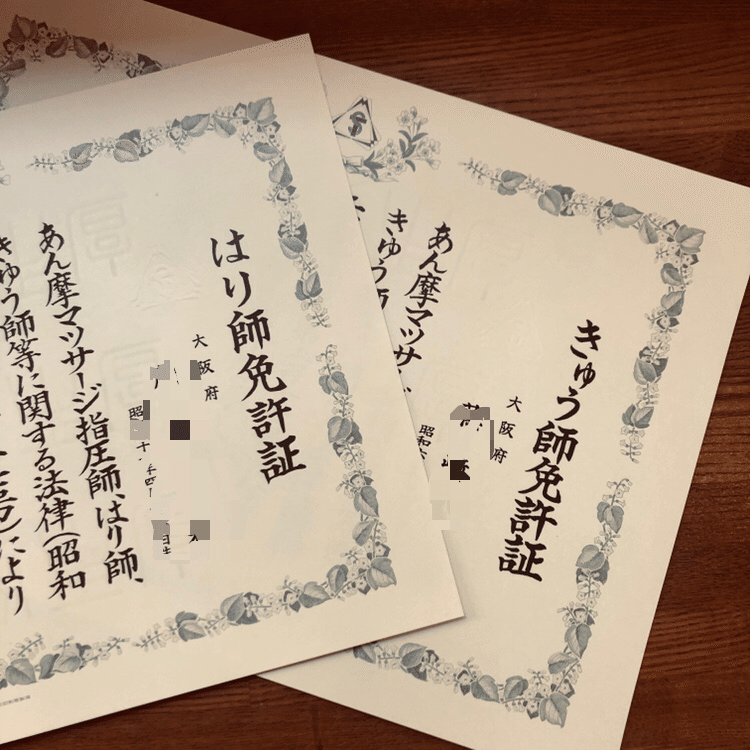 はり師免許証
大阪府
昭
あん摩マツサージ指圧師、はり師、
きゅう師等に関する法律(昭和
により
きゅう師免許証
大阪府
昭和
あん摩マツサ
きゅう師